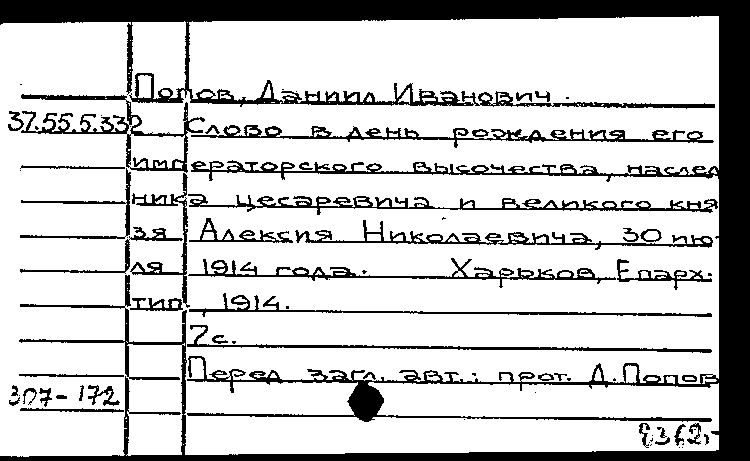 Попов, Даниил Иванович.
37.55.5.332 Слово в день рождения его
императорского высочества, наслед
ника цесаревича и великого кня
зя Алексия Николаевича, 30 ию-
ля 1914 года. Харьков, Епарх.
тип., 1914.
7с.
Перед загл. авт.: прот. Д. Попов
307-172